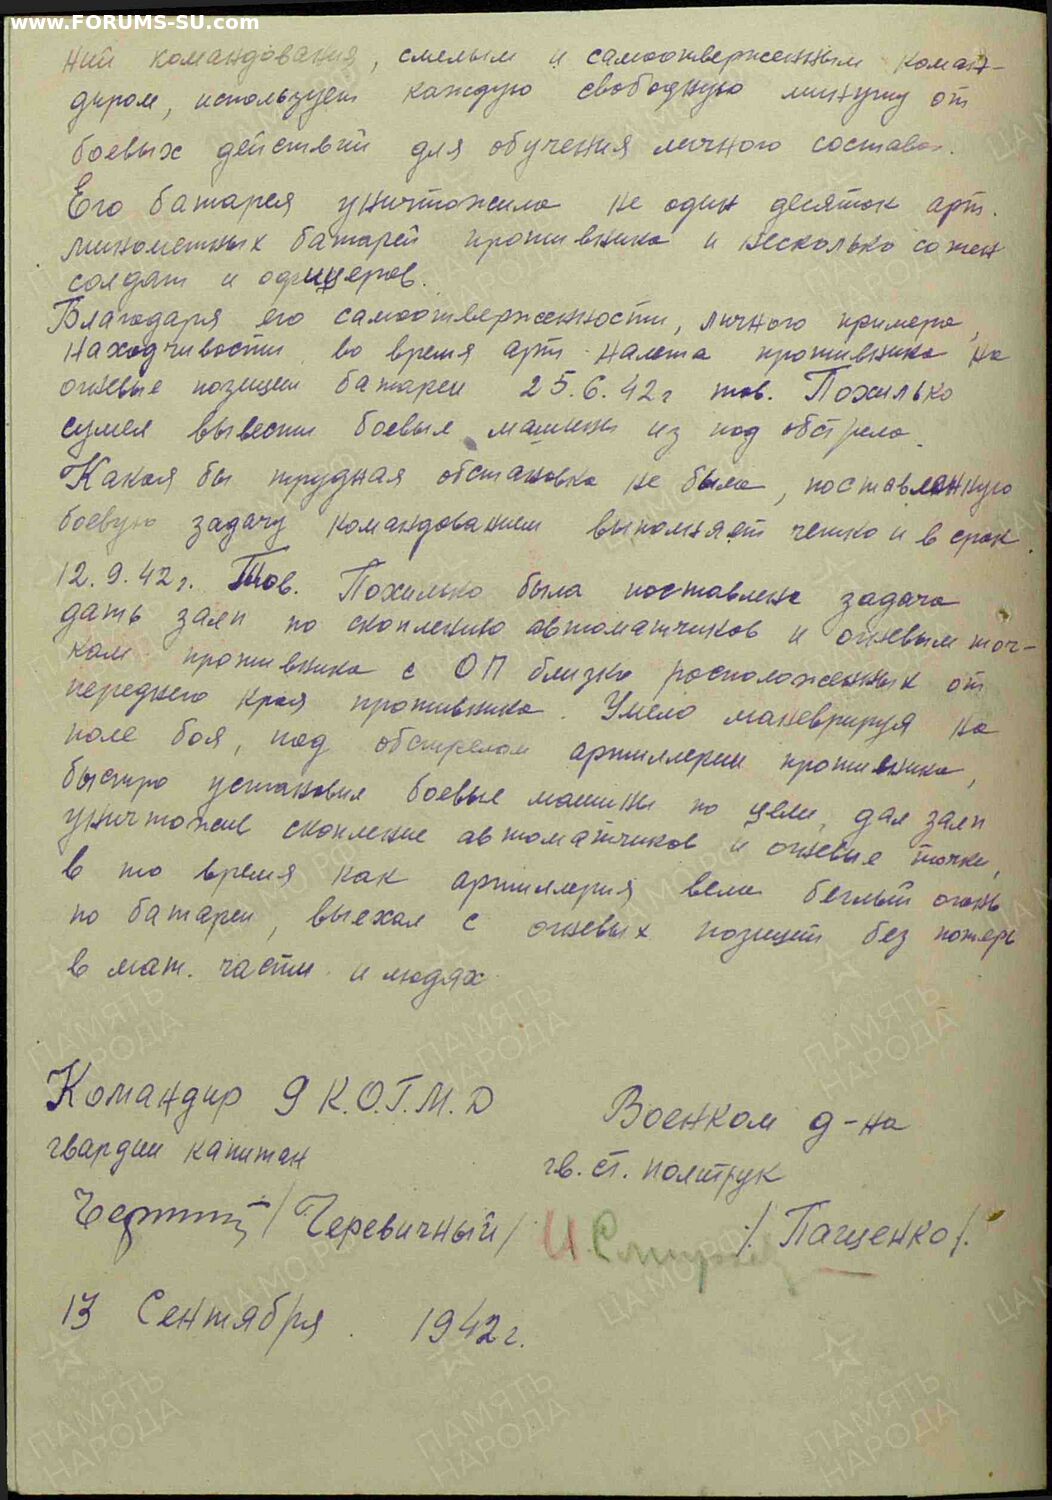 www.FORUMS-SU.com
ний командования, смелым и самоотверженным коман-
диром, использует каждую свободную минуту от
боевых действий для обучения личного состава.
Его батарея уничтожила не один десяток арт.
минометных батарей противника и несколько сотен
солдат и офицеров.
Благодаря его самоотверженности, личного примера,
находчивости во время арт. налета противника на
огневые позиции батареи 25.6.42г тов. Похилько
сумел вывести боевые машины из под обстрела.
Какая бы трудная обстановка не была, поставленную
боевую задачу командованием выполняет четко и в срок.
12.9.42г. Тов. Похилько была поставлена задача
дать залп по скоплению автоматчиков и огневым точ-
кам противника с ОП близко расположенных от
переднего края противника. Умело маневрируя на
поле боя, под обстрелом артиллерии противника,
быстро установил боевые машины по цели, дал залп
уничтожив скопление автоматчиков и огневые точки,
в то время как артиллерия вела беглый огонь
по батареи, выехал с огневых позиций без потерь
в мат. части и людях
Командир 9 К.О.Г.М.Д
гвардии капитан
/Черевичный/
Военком д-на
гв. ст. политрук
/Пащенко/.
13 Сентября 1942г.
ПАМЯТЬ
НАРОДА
ЦАМО.РФ